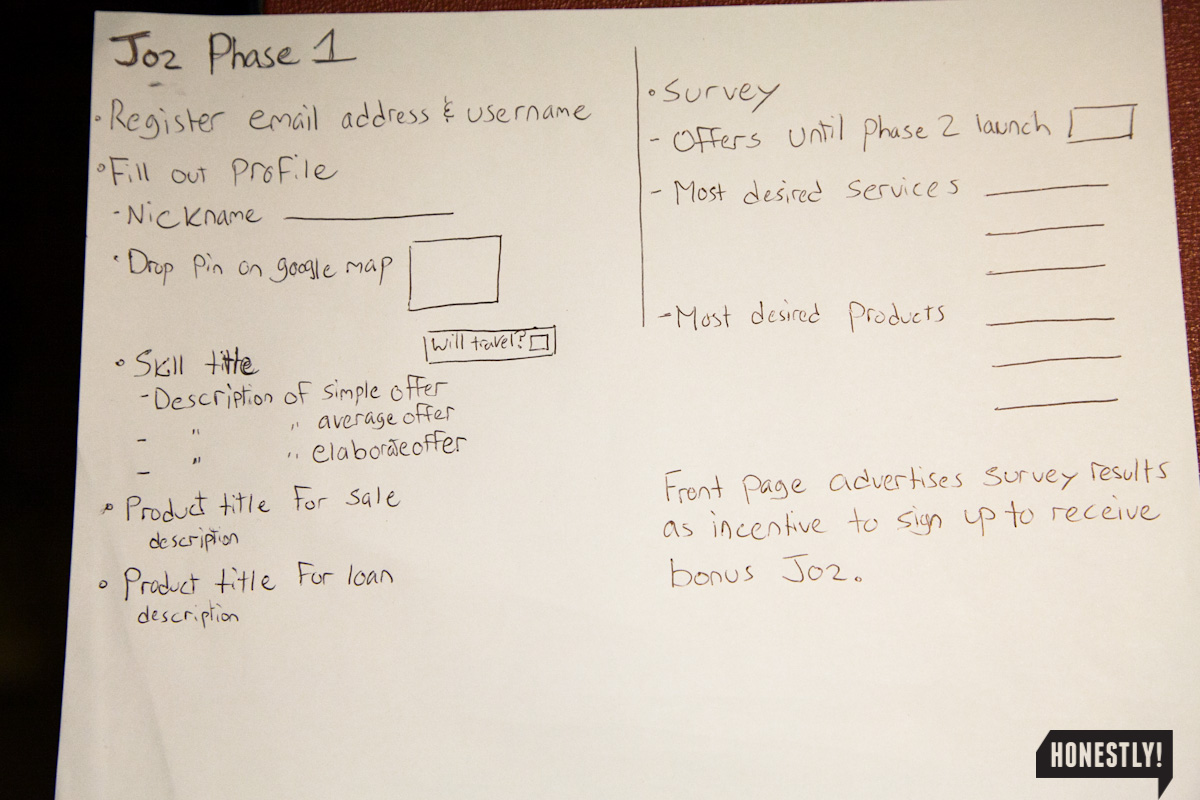 Joz Phase 1
• Register email address & username
• Fill out profile
- Nickname
• Drop pin on google map
Will travel?
• Skill title
- Description of simple offer
- " " average offer
- " " elaborate offer
• Product title for sale
description
• Product title for loan
description
• Survey
- Offers until phase 2 launch
- Most desired services
- Most desired products
Front page advertises survey results
as incentive to sign up to receive
bonus Joz.
HONESTLY!